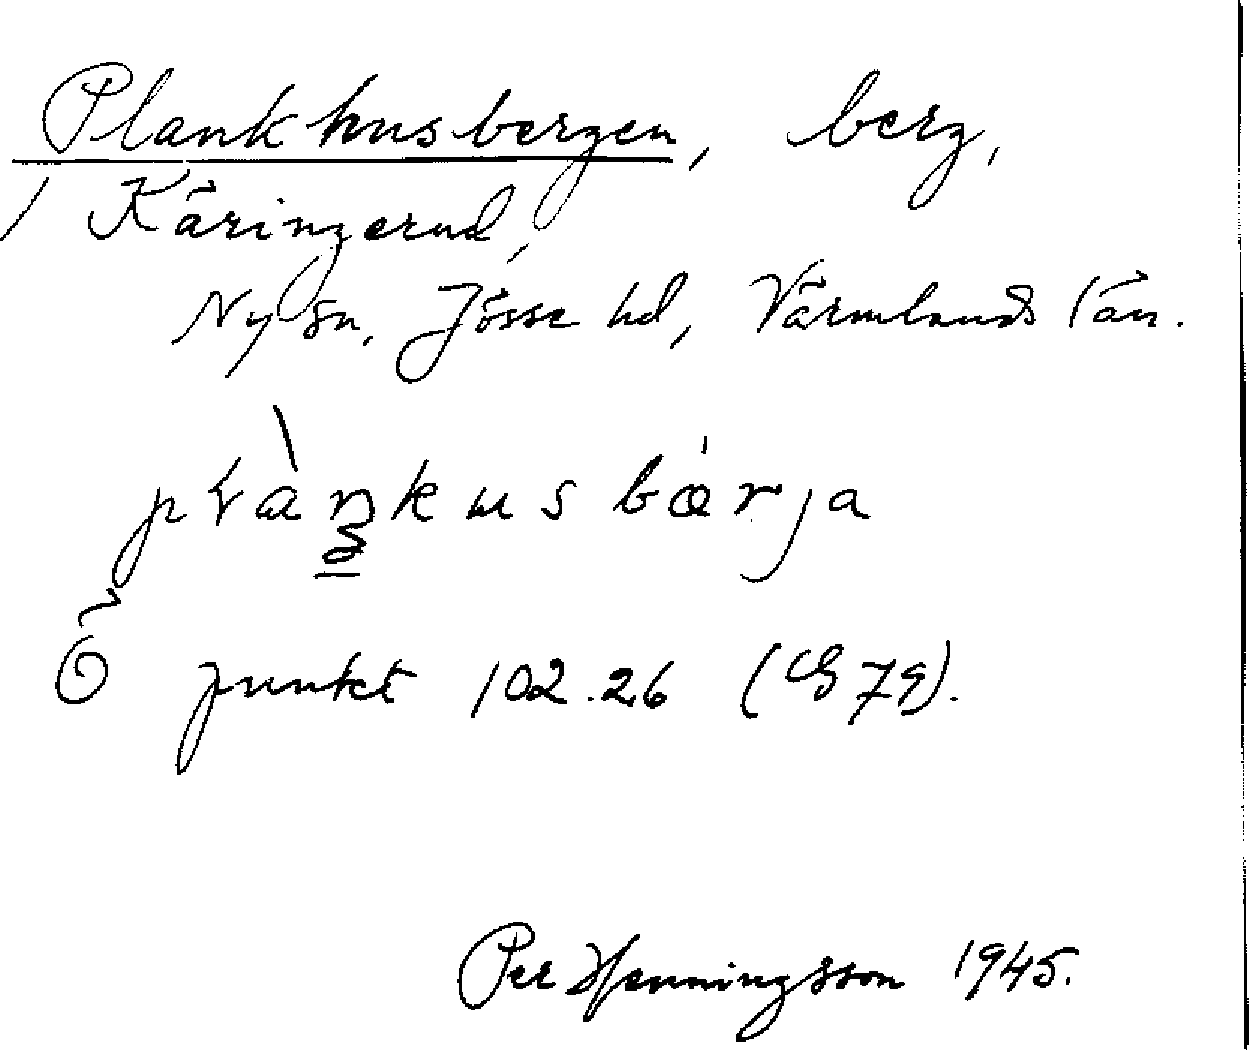 Plankhusbergen, berg,
/ Käringerud,
Ny sn, Jösse hd, Värmlands län.
plàŋkusbǽrja
Ö punkt 102.26 (G 79).
Per Henningsson 1945.